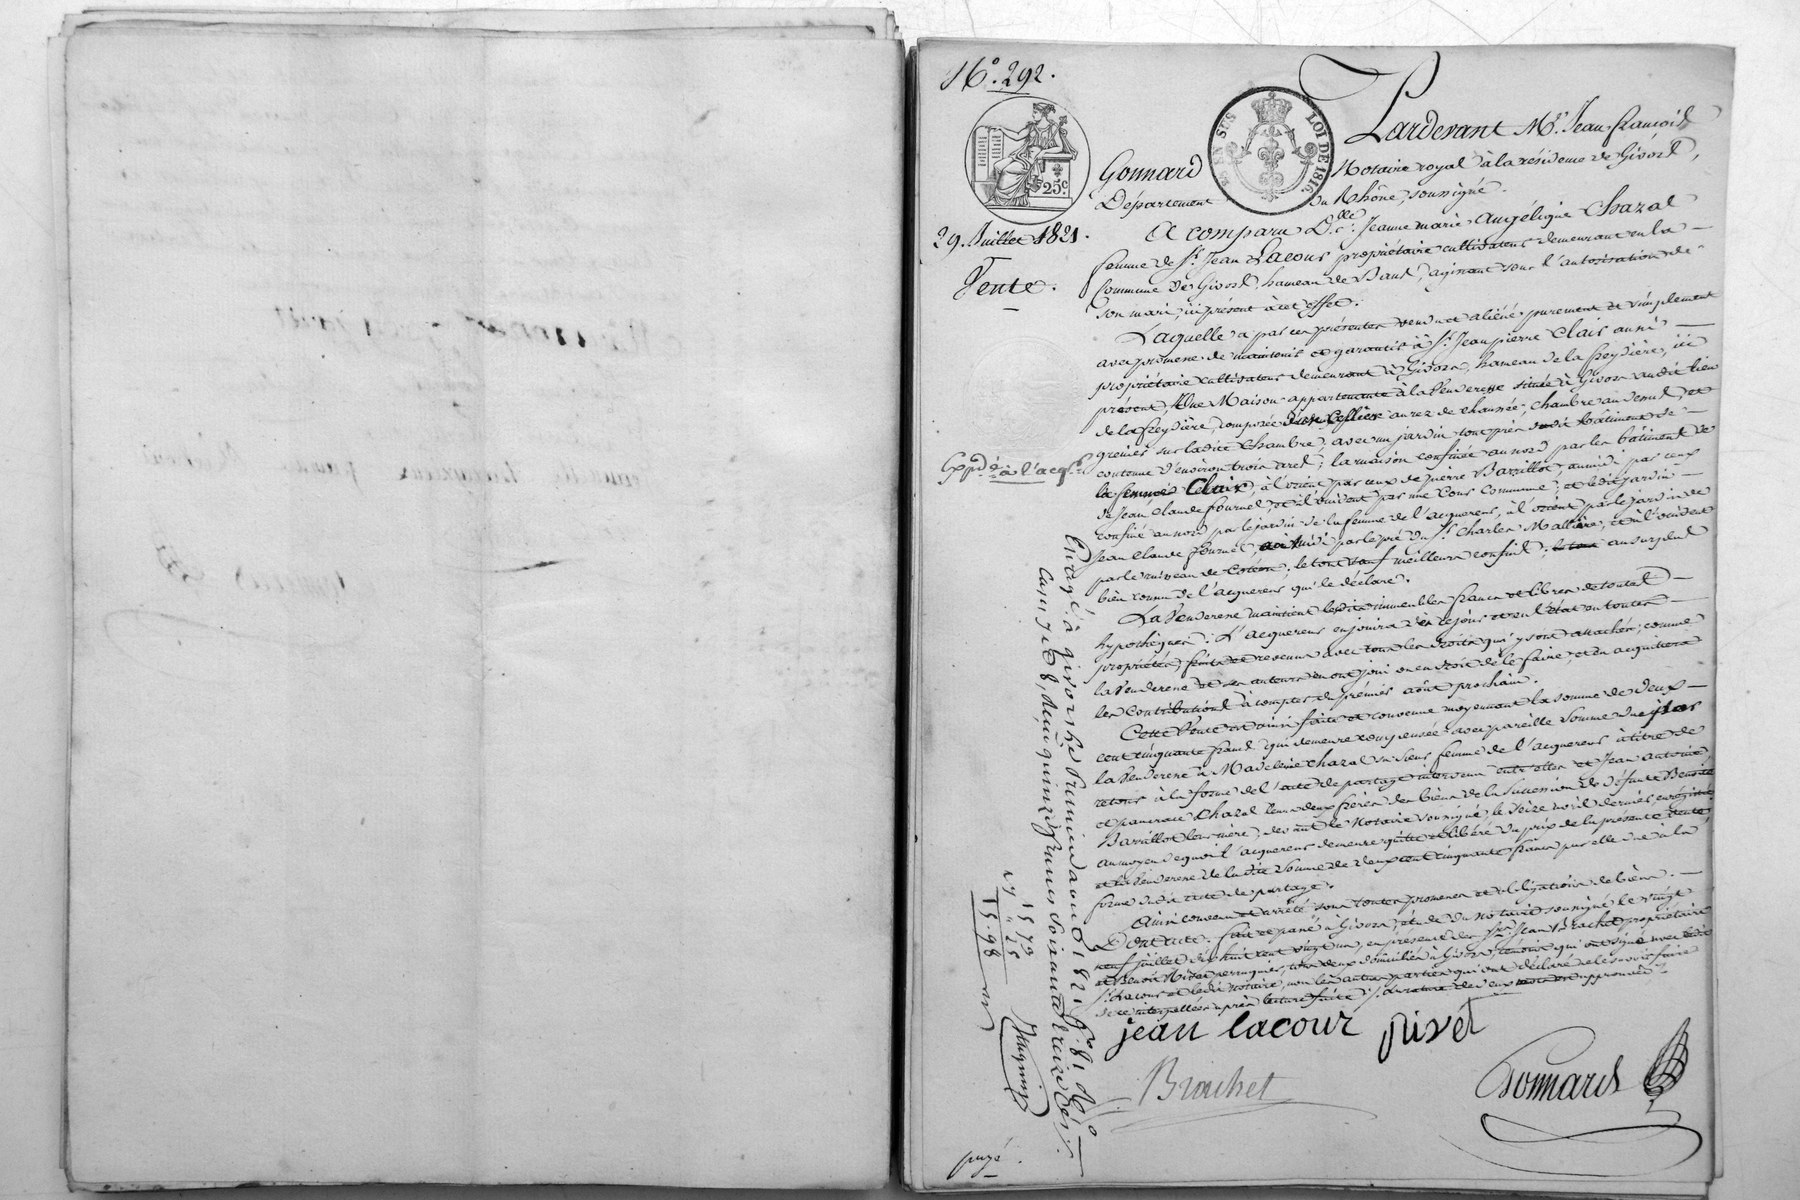 N.º 292.
25.c
RS EN SUS
LOI DE 1816.
29. Juillet 1821.
Vente.
Expéd.é à l'acq.r
Pardevant M.e Jean françois
Gonnard Notaire royal à la résidence de Givors,
Département du Rhône, soussigné.
A comparu D.lle Jeanne marie Angélique Chazal
femme de S.r Jean Lacour propriétaire cultivateur demeurant en la
Commune de Givors, hameau de Bans, agissant sous l'autorisation de
son mari, ici présent à cet effet.
Laquelle a par ces présentes vendu et aliéné purement et simplement
avec promesse de maintenir et garantir à S.r Jean pierre Clair aussi
propriétaire cultivateur demeurant à Givors, hameau de la freydière, ici
présent, Une Maison appartenante à la Venderesse située à Givors audit lieu
de la freydière, composée d'un Cellier au rez de chaussée, chambre au dessus, et
grenier sur ladite chambre, avec un jardin tout près dudit bâtiment de
contenue d'environ trois ares; la maison confinée au nord par les bâtiments de
Clair, à l'orient par ceux de pierre Barillot, au midi par ceux
de Jean Claude fournel, et à l'occident par une Cour Commune; et ledit jardin
confiné au nord par le jardin de la femme de l'acquereur, à l'orient par le jardin de
Jean Claude fournel, au midi par le pré du S.r Charles Mallière, et à l'occident
par le ruisseau de Coteon; le tout sauf meilleurs confins; au surplus
bien connu de l'acquereur qui le déclare.
La Venderesse maintient lesdits immeubles francs et libres de toutes
hypothèques; L'acquereur en jouira dès ce jour et en l'état en toutes
propriétés, fruits et revenus avec tous les droits qui y sont attachés, comme
la Venderesse et ses auteurs en ont joui ou en droit de le faire, et en acquittera
les Contributions à compter du premier août prochain.
Cette Vente est ainsi faite et convenue moyennant la somme de Deux
cent cinquante francs qui demeure compensée avec pareille Somme due par
la Venderesse à Madeleine Chazal sa sœur femme de l'acquereur à titre de
retour à la forme de l'acte de partage intervenu entr'elles et Jean antoine
et pancrace Chazal leurs deux frères des biens de la Succession de défunte Benoite
Barillot leur mère, devant le Notaire soussigné, le seize avril dernier, enregistré
au moyen de quoi l'acquereur demeure quitte et libéré du prix de la présente Vente
et la Venderesse de ladite Somme de deux cent cinquante francs par elle due à la
forme dudit acte de partage.
Ainsi convenu et arrêté sous toutes promesses et obligations de biens.
Dont acte. fait et passé à Givors, étude du Notaire soussigné le vingt
neuf juillet dix huit cent vingt un, en présence des S.rs Jean Brachet propriétaire
et Benoit Rivet perruquier, tous deux domiciliés à Givors, témoins qui ont signé avec ledit
S.r Lacour et ledit Notaire, non les autres parties qui ont déclaré ne le savoir faire
de ce interpellées après lecture faite. rature de deux mots approuvée.
jean lacour rivet
Brachet
Gonnard
Enreg.é à givors le Premier aout 1821 f.o 81 R.o
Cases 7 et 8, Reçu quinze francs soixante treize c.es
15 73
" 25
15. 98
payé.